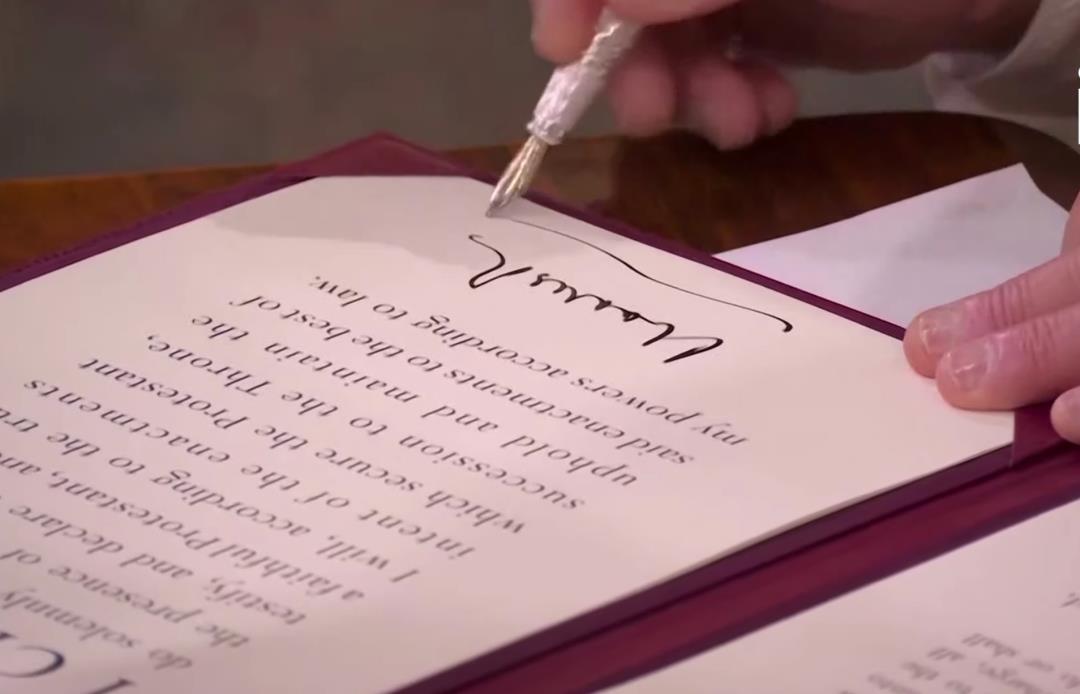 I
do solemnly
the presence of
testify, and declare
a faithful Protestant,
I will, according to the
intent of the enactments
which secure the Protestant
succession to the Throne,
uphold and maintain the
said enactments to the best of
my powers according to law.
Charles R
to the
all
or shall